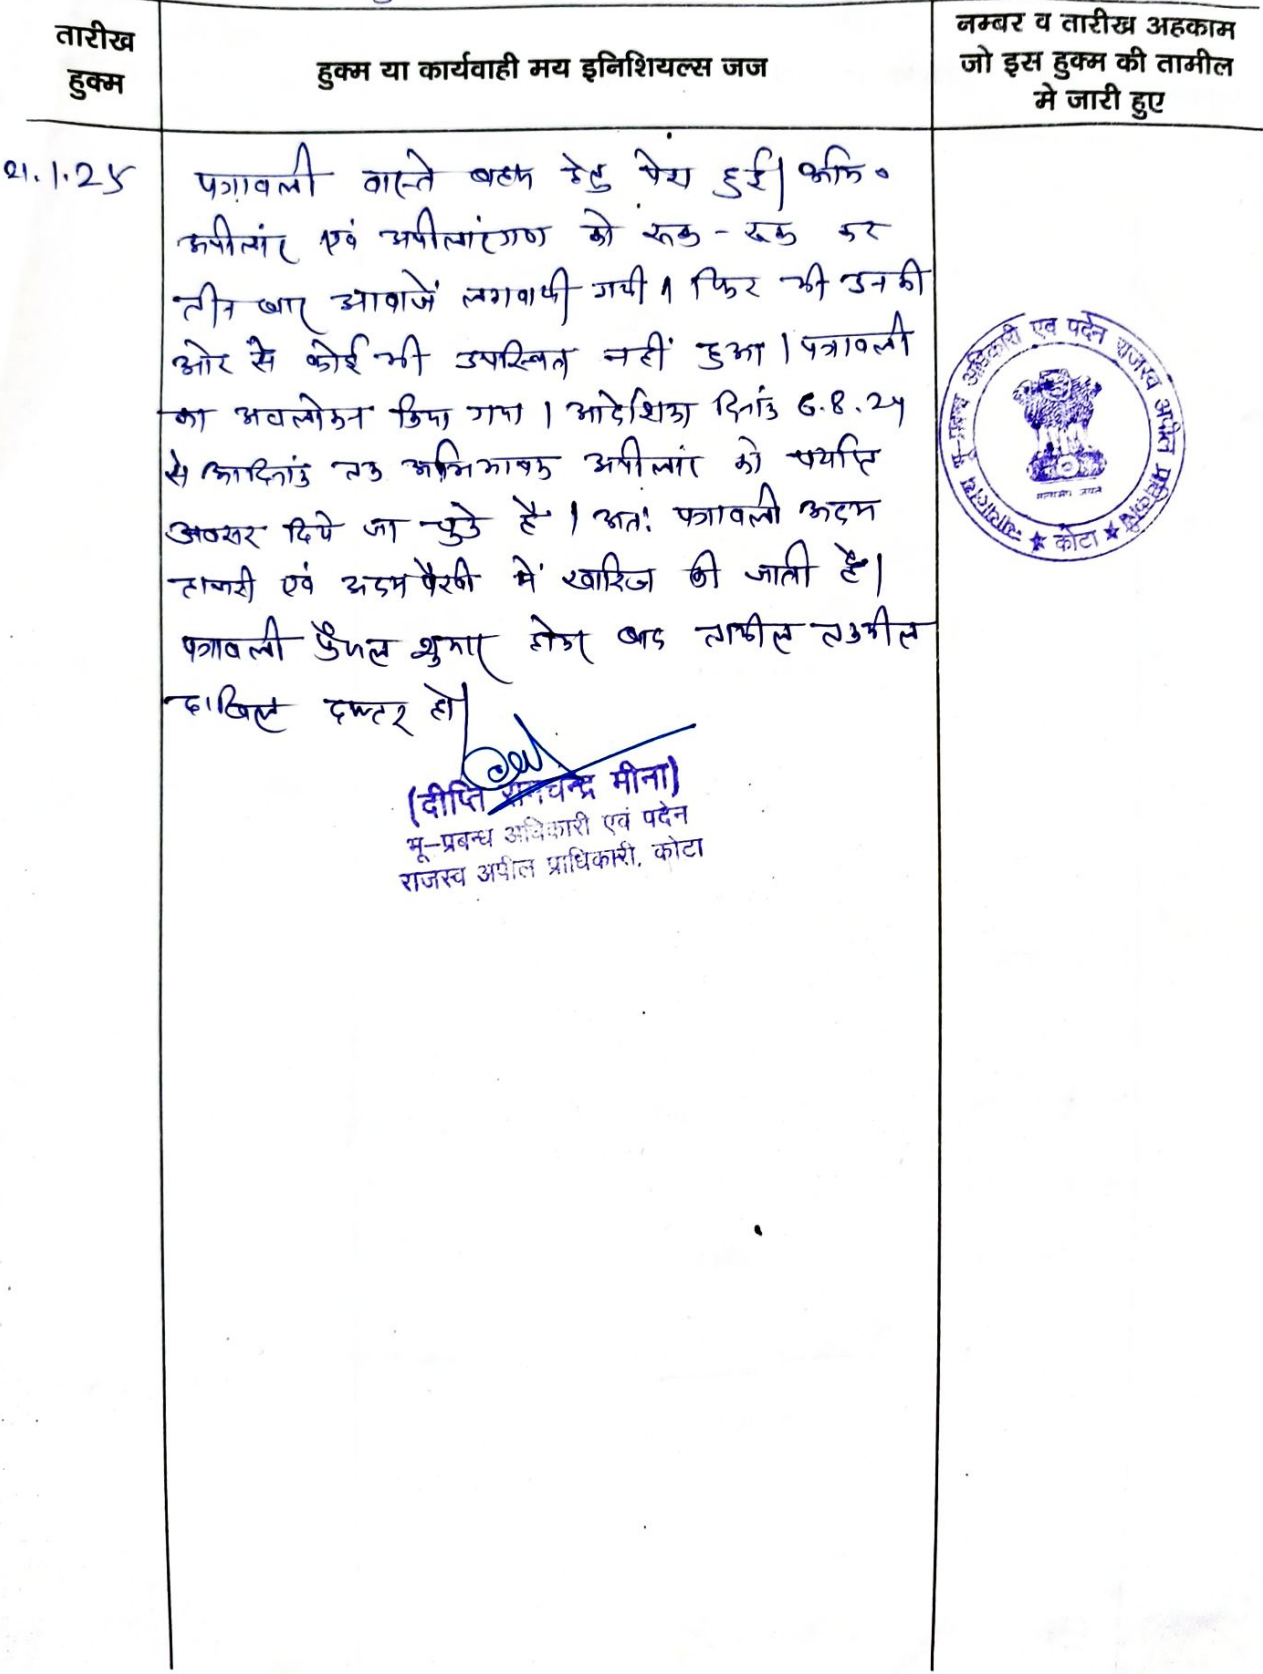 तारीख
हुक्म
हुक्म या कार्यवाही मय इनिशियल्स जज
नम्बर व तारीख अहकाम
जो इस हुक्म की तामील
मे जारी हुए
21.1.25
पत्रावली वास्ते बहस हेतु पेश हुई। अभि०
अपीलांट एवं अपीलांटगण को रूक-रूक कर
तीन बार आवाजें लगवायी गयी। फिर भी उनकी
ओर से कोई भी उपस्थित नहीं हुआ। पत्रावली
का अवलोकन किया गया। आदेशिका दिनांक 6.8.24
से आदिनांक तक अभिभाषक अपीलांट को पर्याप्त
अवसर दिये जा चुके है। अतः पत्रावली अदम
हाजरी एवं अदम पैरवी में खारिज की जाती है।
पत्रावली फैसल शुमार होकर बाद तामील तकमील
दाखिल दफ्तर हो।
(दीप्ति रामचन्द्र मीना)
भू-प्रबन्ध अधिकारी एवं पदेन
राजस्व अपील प्राधिकारी, कोटा
न्यायालय भू-प्रबन्ध अधिकारी एवं पदेन राजस्व अपील प्राधिकारी
सत्यमेव जयते
★ कोटा ★